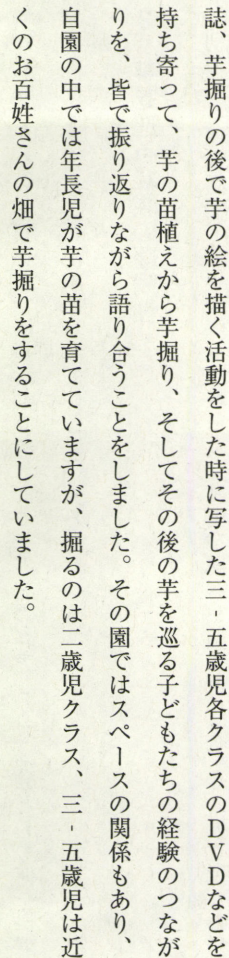 誌、芋掘りの後で芋の絵を描く活動をした時に写した三‐五歳児各クラスのＤＶＤなどを
持ち寄って、芋の苗植えから芋掘り、そしてその後の芋を巡る子どもたちの経験のつなが
りを、皆で振り返りながら語り合うことをしました。その園ではスペースの関係もあり、
自園の中では年長児が芋の苗を育てていますが、掘るのは二歳児クラス、三‐五歳児は近
くのお百姓さんの畑で芋掘りをすることにしていました。